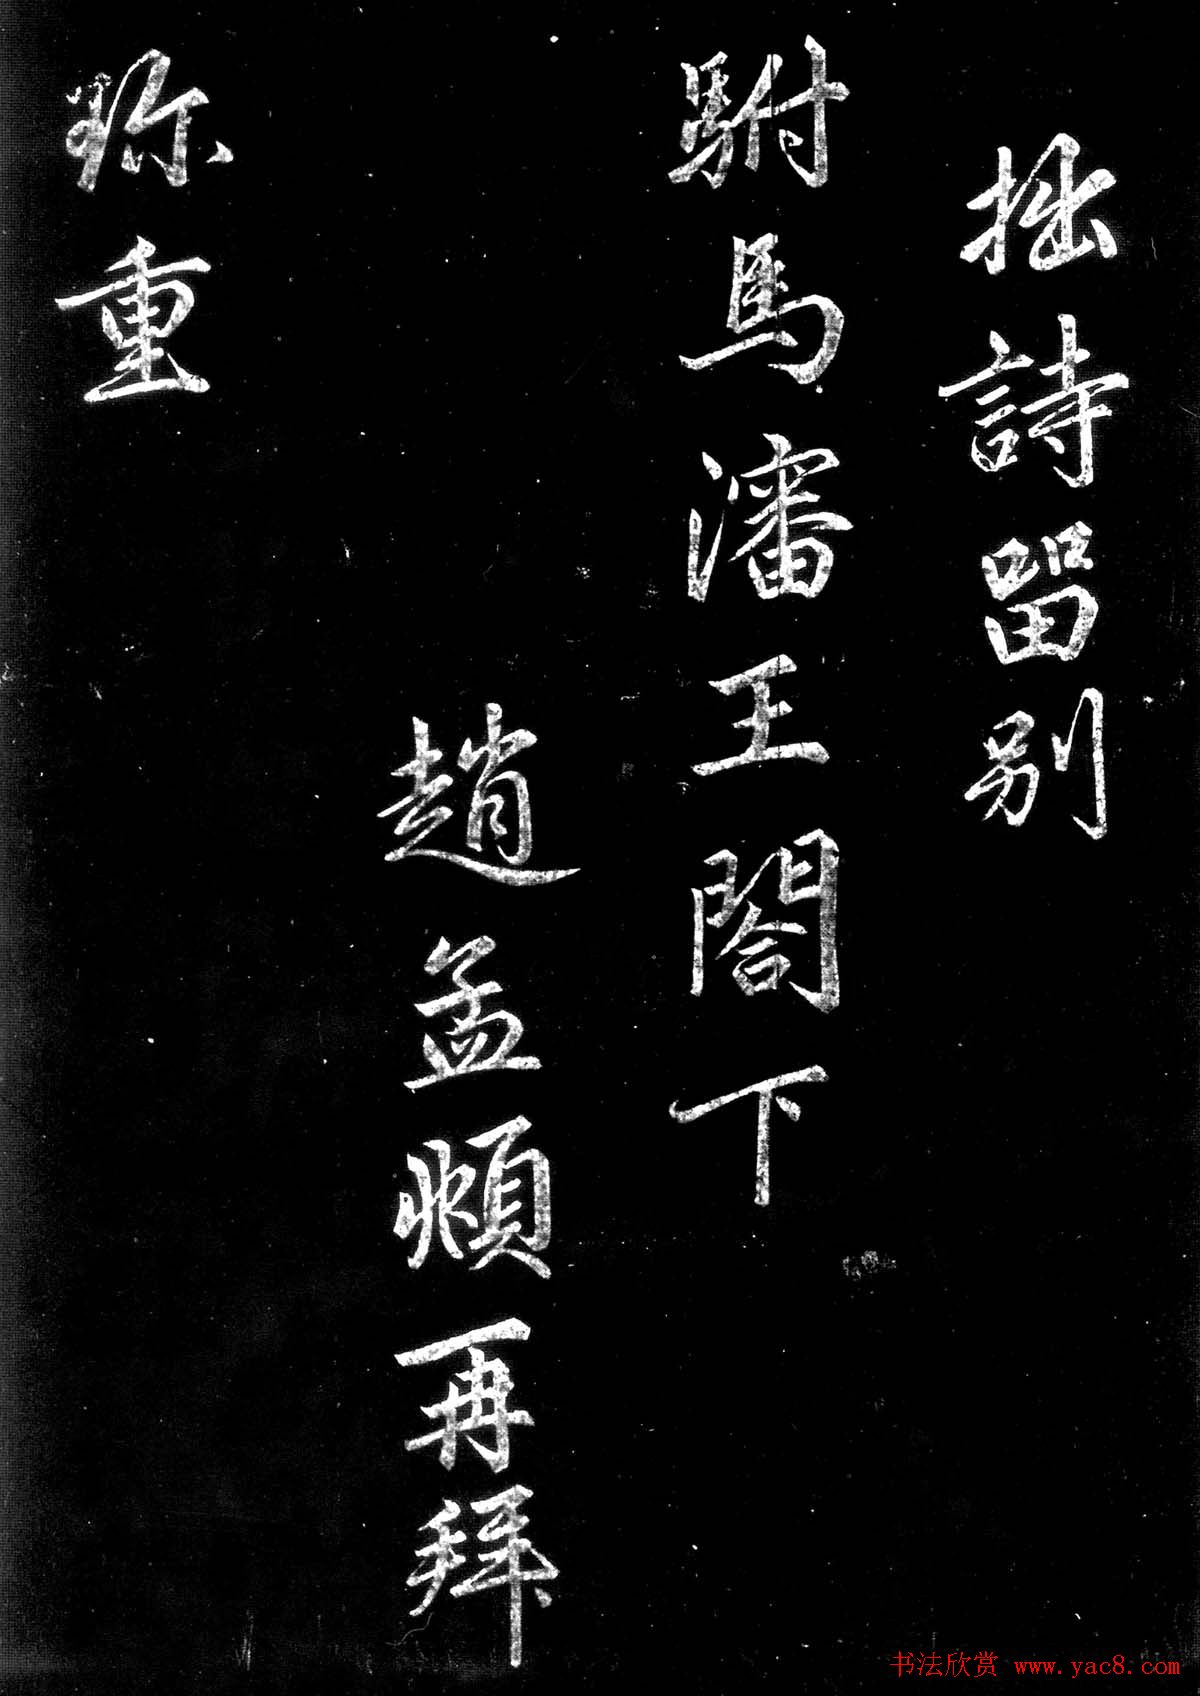 拙詩留别
駙馬瀋王閤下
趙孟頫再拜
珎重
书法欣赏 www.yac8.com